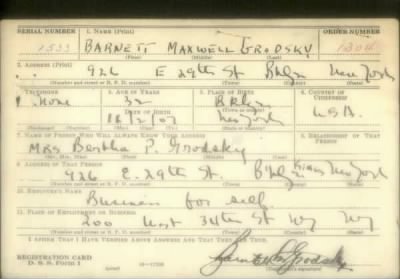 SERIAL NUMBER 1. NAME (Print) ORDER NUMBER
1533 BARNETT MAXWELL GRODSKY 1304
(First) (Middle) (Last)
2. ADDRESS (Print)
926 E 29th St Bklyn New York
(Number and street or R. F. D. number) (Town) (County) (State)
3. TELEPHONE 4. AGE IN YEARS 5. PLACE OF BIRTH 6. COUNTRY OF CITIZENSHIP
None 32 Bklyn U.S.A.
DATE OF BIRTH
New York
(Exchange) (Number) (Mo.) (Day) (Yr.) (State or country)
7. NAME OF PERSON WHO WILL ALWAYS KNOW YOUR ADDRESS 8. RELATIONSHIP OF THAT PERSON
Mrs Bertha P. Grodsky
(Mr., Mrs., Miss) (First) (Middle) (Last)
9. ADDRESS OF THAT PERSON
926 E. 29th St. Bklyn Kings New York
(Number and street or R. F. D. number) (Town) (County) (State)
10. EMPLOYER'S NAME
Business for self
11. PLACE OF EMPLOYMENT OR BUSINESS
200 West 34th St NY NY
(Number and street or R. F. D. number) (Town) (County) (State)
I AFFIRM THAT I HAVE VERIFIED ABOVE ANSWERS AND THAT THEY ARE TRUE.
REGISTRATION CARD
D. S. S. Form 1 (over) 16—17105
(Registrant's signature)